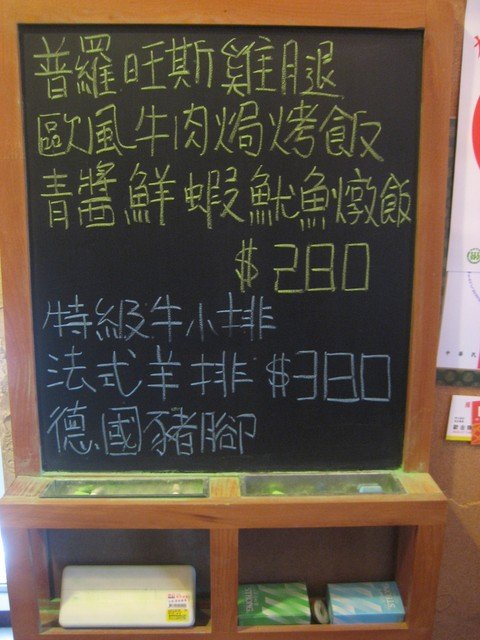 普羅旺斯雞腿
歐風牛肉焗烤飯
青醬鮮蝦魷魚燉飯
$280
特級牛小排
法式羊排 $380
德國豬腳